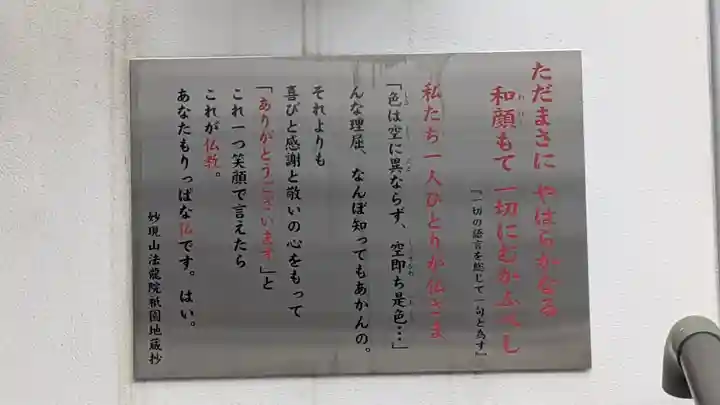 ただまさに やはらかなる
和顔もて 一切にむかふべし
『一切の語言を総じて一句と為す』
私たち一人ひとりが仏さま
「色は空に異ならず、空即ち是色…」
んな理屈、なんぼ知ってもあかんの。
それよりも
喜びと感謝と敬いの心をもって
「ありがとうございます」と
これ一つ笑顔で言えたら
これが仏教。
あなたもりっぱな仏です。はい。
妙現山法龍院祇園地蔵抄